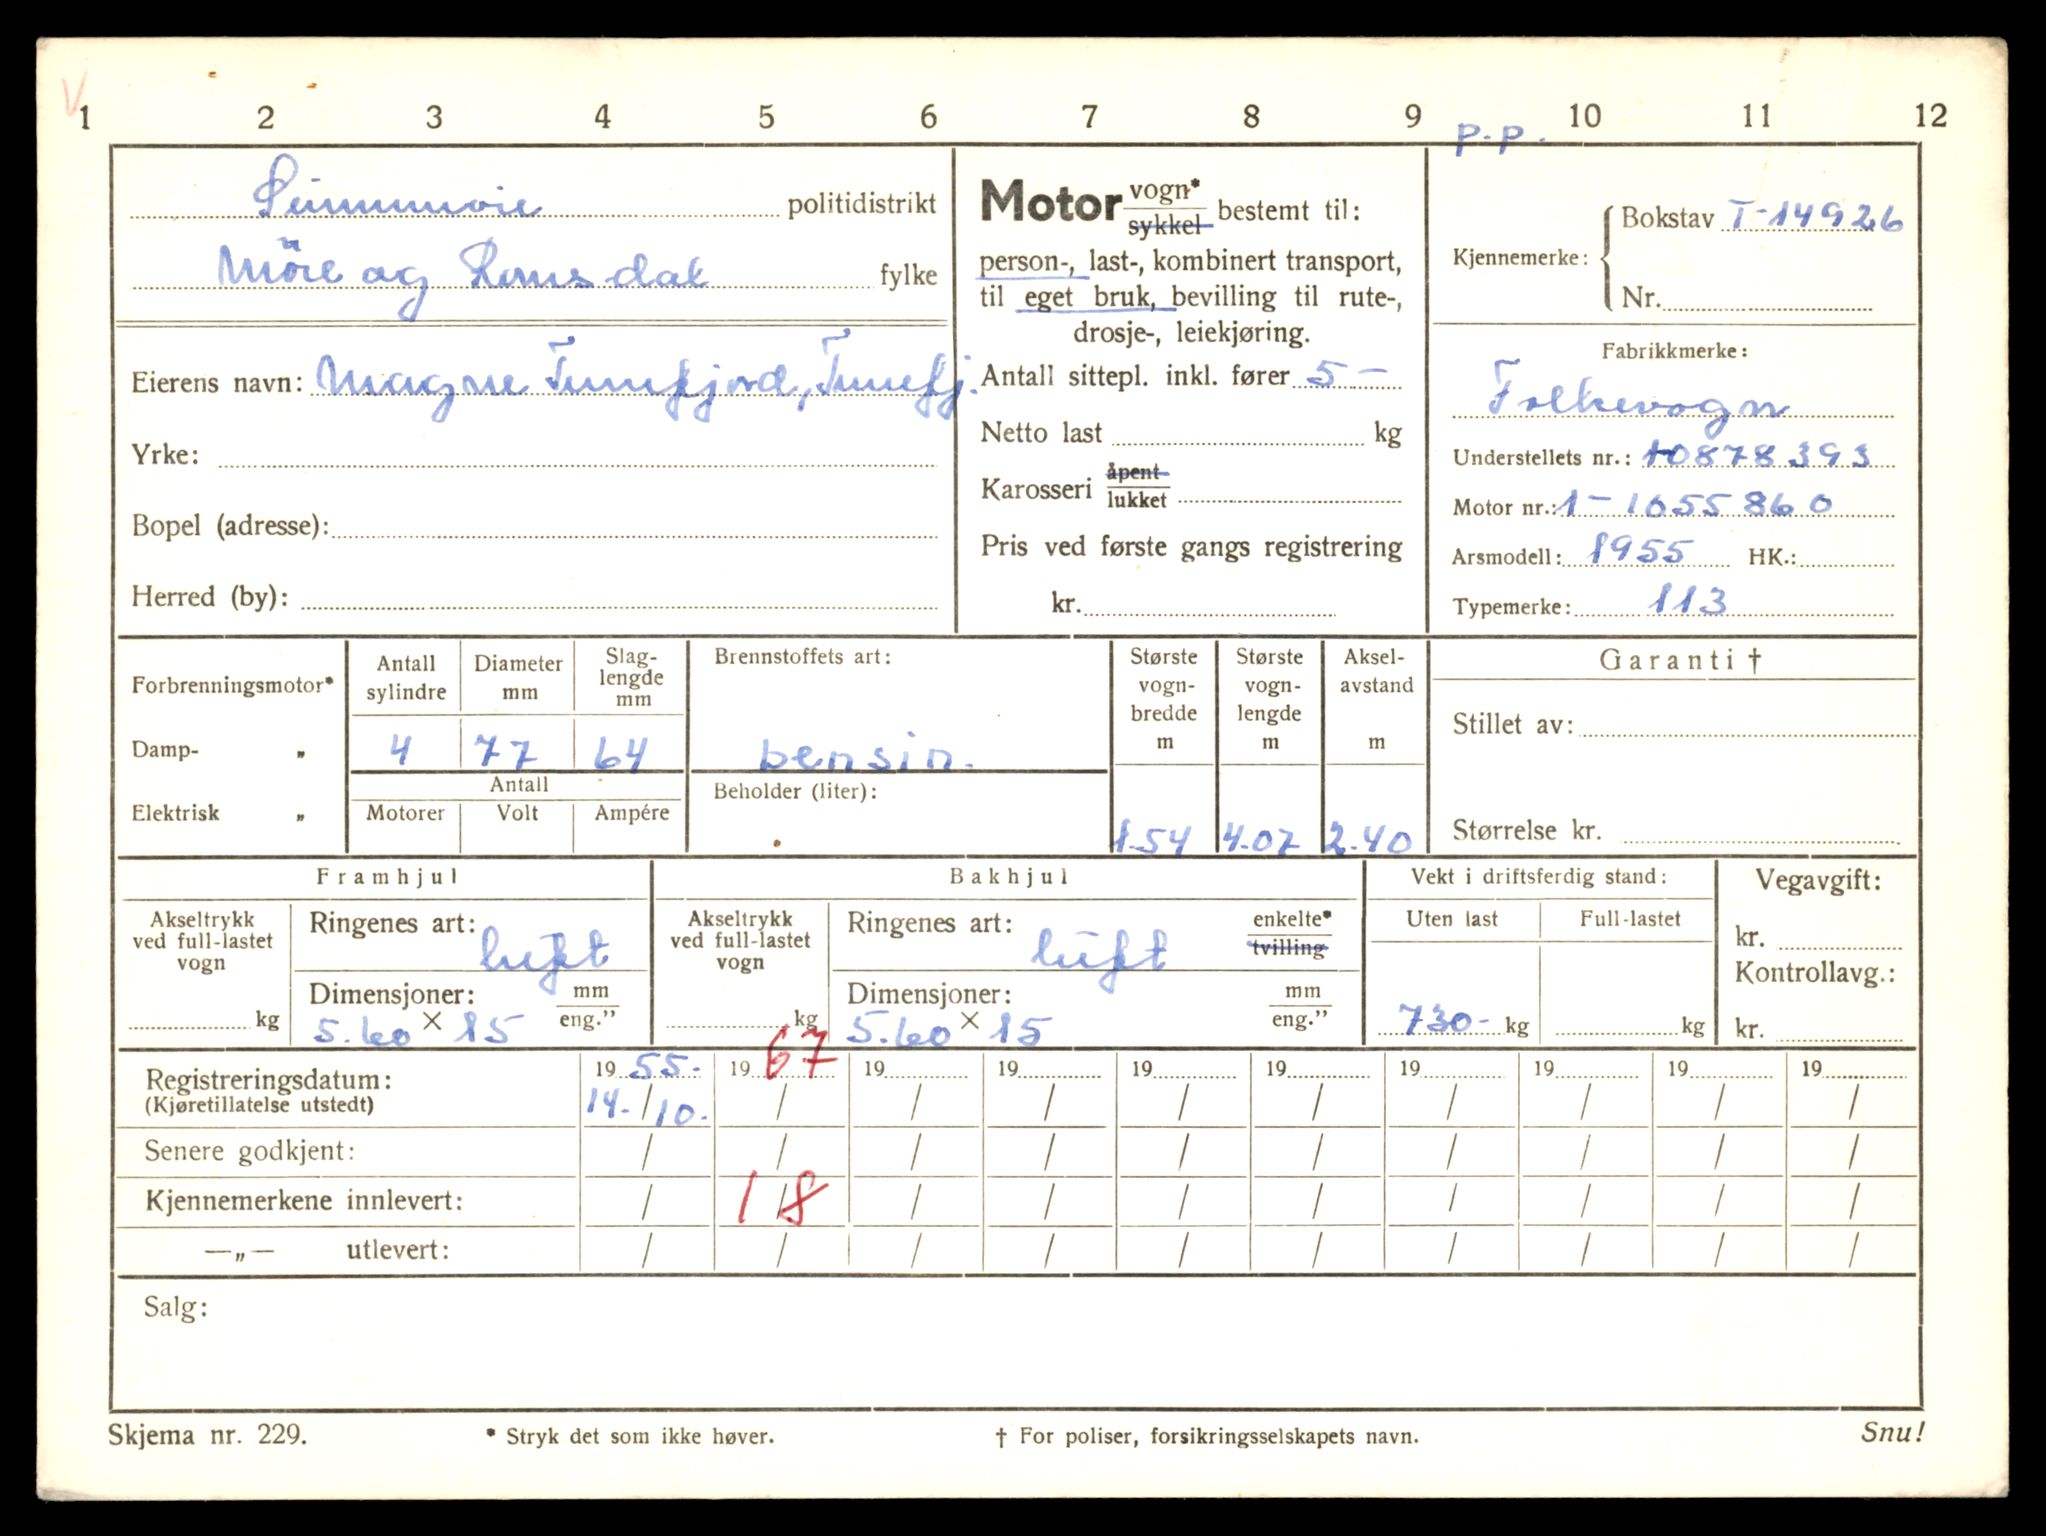 V
1 2 3 4 5 6 7 8 9 10 11 12
P.P.
Sunnmøre politidistrikt
Møre og Romsdal fylke
Eierens navn: Magne Tunefjord, Tunefj.
Yrke:
Bopel (adresse):
Herred (by):
Motor vogn* sykkel bestemt til:
person-, last-, kombinert transport,
til eget bruk, bevilling til rute-,
drosje-, leiekjøring.
Antall sittepl. inkl. fører 5 -
Netto last kg
Karosseri åpent lukket
Pris ved første gangs registrering
kr.
Kjennemerke: Bokstav T-14926
Nr.
Fabrikkmerke:
Folkevogn
Understellets nr.: 10878393
Motor nr.: 1-1055860
Arsmodell: 1955 HK.:
Typemerke: 113
Forbrenningsmotor*
Damp- „
Elektrisk „
Antall sylindre Diameter mm Slag-lengde mm
4 77 64
Antall
Motorer Volt Ampére
Brennstoffets art:
bensin.
Beholder (liter):
Største vogn-bredde m Største vogn-lengde m Aksel-avstand m
1.54 4.07 2.40
Garanti †
Stillet av:
Størrelse kr.
Framhjul
Akseltrykk ved full-lastet vogn
kg
Ringenes art: luft
Dimensjoner: mm eng."
5.60 × 15
Bakhjul
Akseltrykk ved full-lastet vogn
kg
Ringenes art: luft enkelte* tvilling
Dimensjoner: mm eng."
5.60 × 15
Vekt i driftsferdig stand:
Uten last Full-lastet
730- kg kg
Vegavgift:
kr.
Kontrollavg.:
kr.
Registreringsdatum: 19 55. 19 67 19 19 19 19 19 19 19 19
(Kjøretillatelse utstedt) 14. / 10. / / / / / / / / /
Senere godkjent: / / / / / / / / / /
Kjennemerkene innlevert: / 1/8 / / / / / / / /
—„— utlevert: / / / / / / / / / /
Salg:
Skjema nr. 229. * Stryk det som ikke høver. † For poliser, forsikringsselskapets navn. Snu!